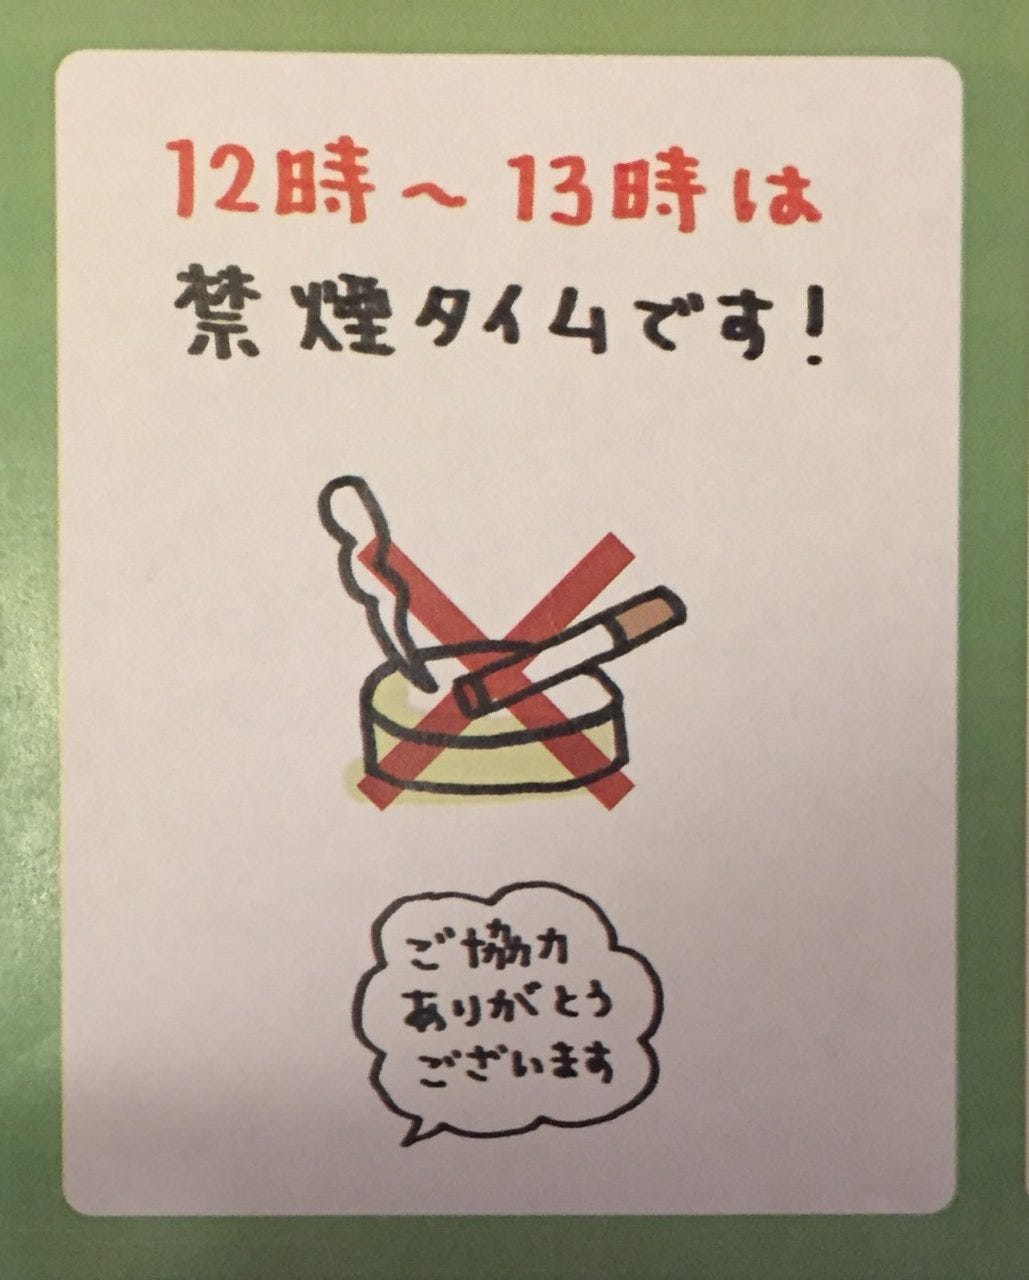 12時〜13時は
禁煙タイムです！
ご協力
ありがとう
ございます